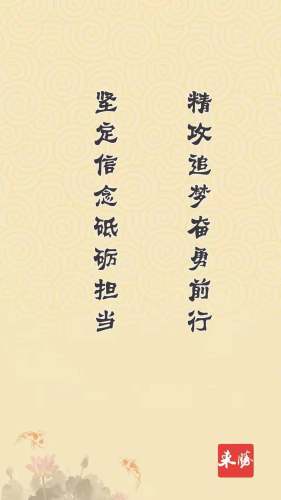 精攻追梦奋勇前行
坚定信念砥砺担当
来胜